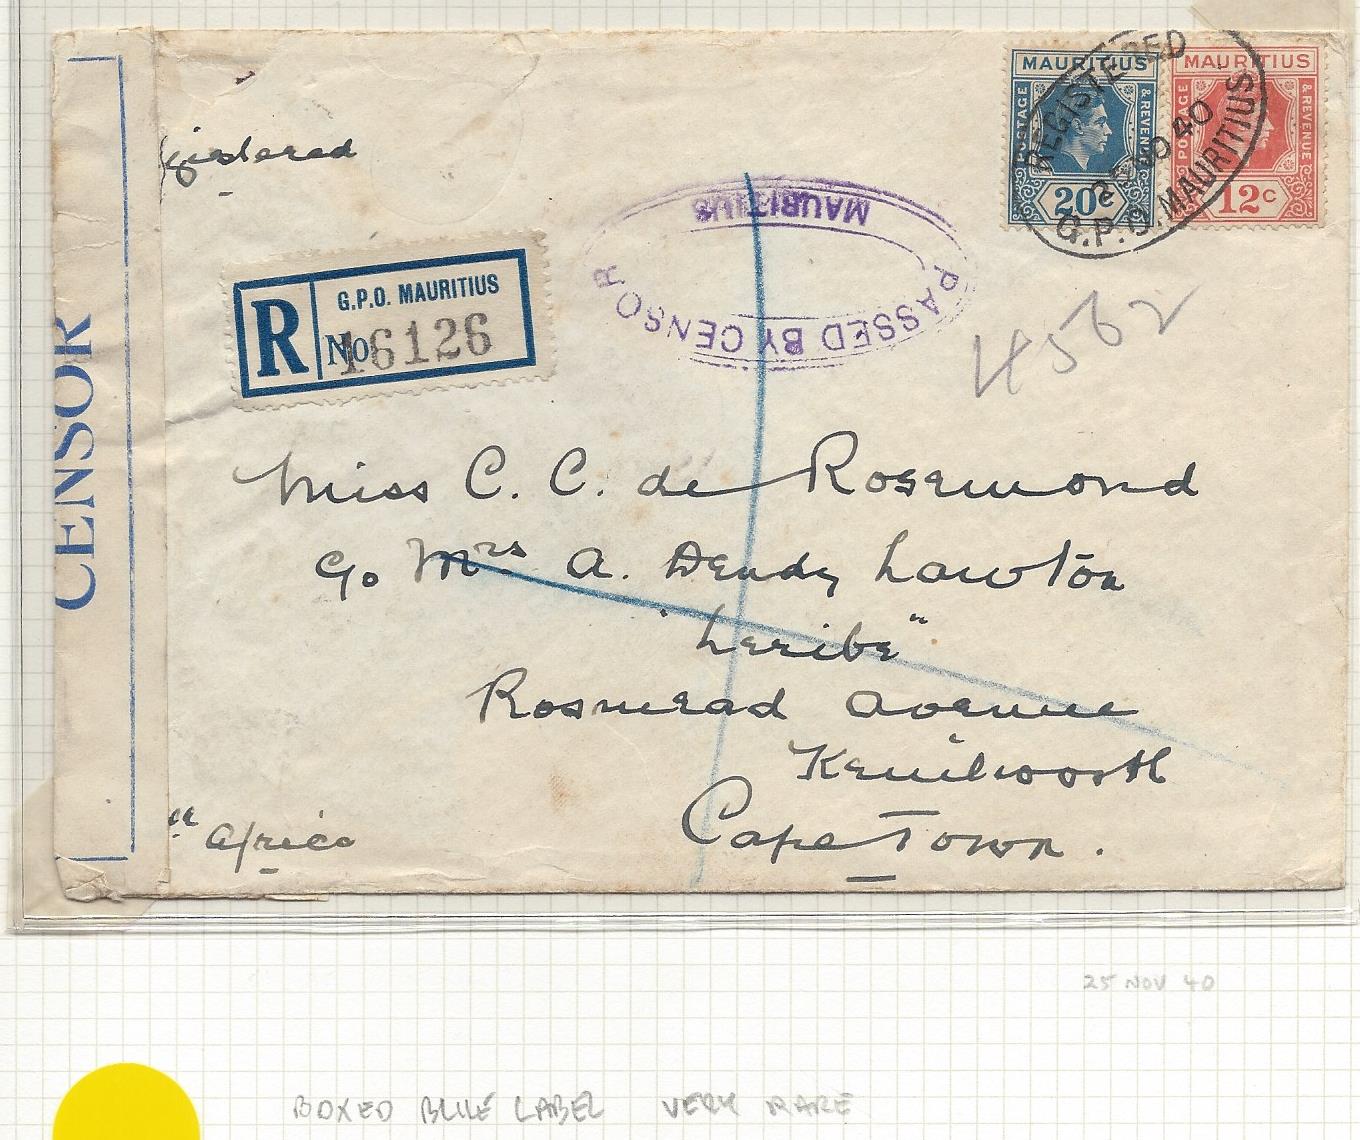 MAURITIUS
MAURITIUS
POSTAGE & REVENUE
POSTAGE & REVENUE
20c
12c
REGISTERED
NO 40
G.P.O. MAURITIUS
gistered
MAURITIUS
PASSED BY CENSOR
R
G.P.O. MAURITIUS
No 16126
CENSOR
4562
Miss C. C. de Rosemond
c/o Mrs A. Dendy Lawton
"Leribe"
Rosmead Avenue
Kenilworth
Cape Town.
Africa
25 NOV 40
BOXED BLUE LABEL VERY RARE